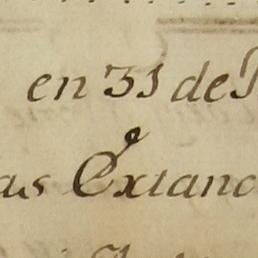 en 31 de
as Extanc